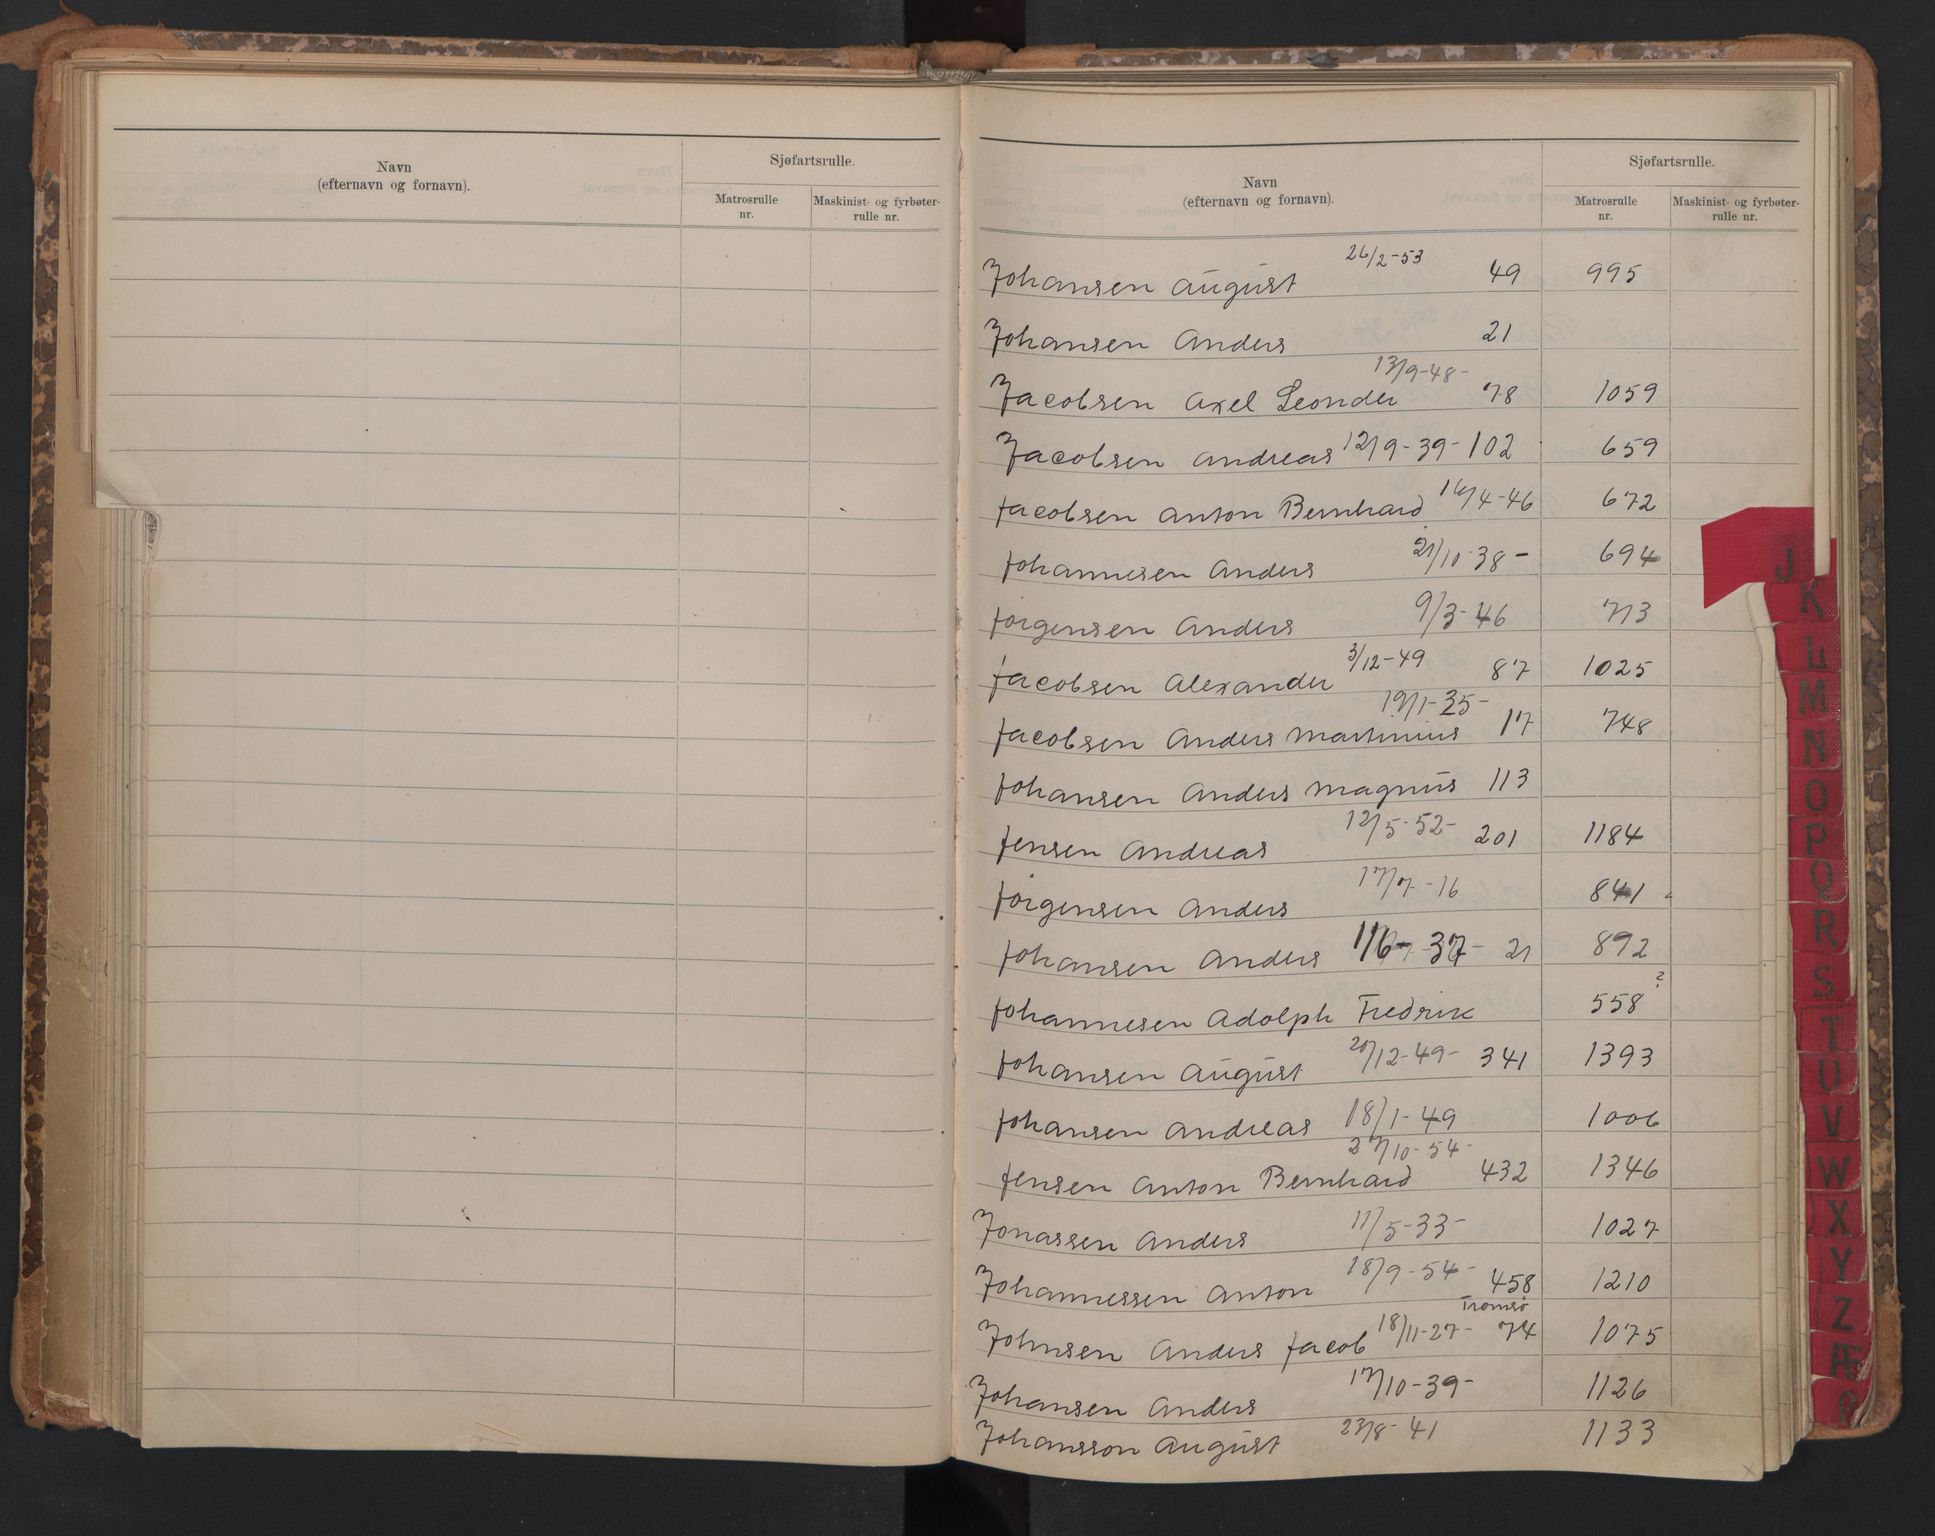 Navn
(efternavn og fornavn).
Sjøfartsrulle.
Matrosrulle
nr.
Maskinist- og fyrbøter-
rulle nr.
Navn
(efternavn og fornavn).
Sjøfartsrulle.
Matrosrulle
nr.
Maskinist- og fyrbøter-
rulle nr.
Johansen August 26/2-53 49 995
Johansen Anders 21
Jacobsen Axel Leonder 13/9-48- 78 1059
Jacobsen Andreas 12/9-39-102 659
Jacobsen Anton Bernhard 14/4-46 672
Johannesen Anders 21/10-38- 694
Jörgensen Anders 9/3-46 713
Jacobsen Alexander 3/12-49 87 1025
Jacobsen Anders Martinius 19/1-35- 17 748
Johansen Anders Magnus 113
Jensen Andreas 12/5-52- 201 1184
Jörgensen Anders 17/7-16 841
Johansen Anders 1/6- 37- 21 892
Johannesen Adolph Fredrik 558 ?
Johansen August 20/12-49- 341 1393
Johansen Andreas 18/1-49 1006
Jensen Anton Bernhard 27/10-54- 432 1346
Jonassen Anders 11/5-33- 1027
Johannessen Anton 18/9-54- 458 1210
Johnsen Anders Jacob 18/11-27- Tromsø 74 1075
Johansen Anders 17/10-39- 1126
Johansson August 23/8-41 1133
J
K
L
M
N
O
P
Q
R
S
T
U
V
W
X
Y
Z
Æ
Ø